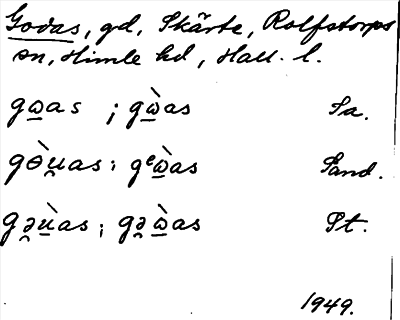 Godas, gd, Skärte, Rolfstorps
sn, Himle hd, Hall. l.
gω̲as ; gὼ̲as Sa.
gɵ̀u̲̯as ; gᵉὼ̲as Sand.
gə̯ù̲as ; gə̯ὼ̲as St.
1949.